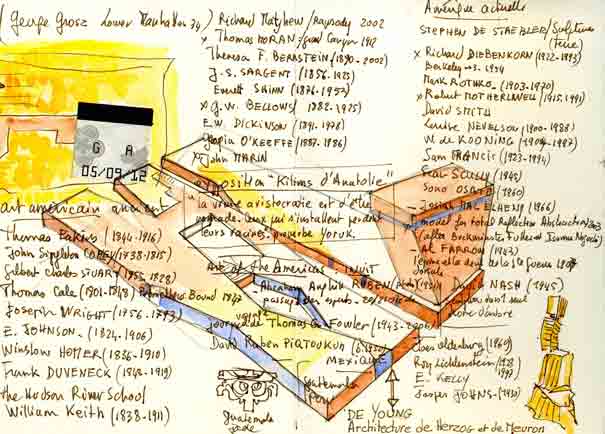 (George Grosz Lower Manhattan 34)
Richard Mayhew/Rhapsody 2002
x Thomas MORAN/Grand Canyon 1912
Theresa F. BERNSTEIN (1890-2002)
J.S. SARGENT (1856.1925)
Everett SHINN (1876-1953)
x G.W. BELLOWS 1882-1925)
E.W. DICKINSON (1891-1978)
Georgia O'KEEFFE (1887-1986)
x John MARIN
exposition "Kilims d'Anatolie"
"la vraie aristocratie est d'être
nomade. Ceux qui s'installent perdent
leurs racines. proverbe Yoruk.
Art of the Americas. INUIT
Abraham Anghik RUBEN
paysage des esprits
voyage
journey de Thomas G. Fowler (1943-
David Ruben PIQTOUKUN
MEXIQUE
Guatemala
Peru
Guatemala
jade
DE YOUNG
Architecture de Herzog et de Meuron
G A
05/09'12
art américain ancien
Thomas Eakins (1844-1916)
John Singleton COPLEY (1738-1815)
Gilbert Charles STUART (1755-1828)
Thomas Cole (1801-1848) Prometheus Bound 1847
Joseph WRIGHT (1756-1793)
E. JOHNSON. (1824-1906)
Winslow HOMER (1836-1910)
Frank DUVENECK (1848-1919)
the Hudson River School
William Keith (1838-1911)
Amérique actuelle
STEPHEN DE STAEBLER/Sculptures
(Terre)
x Richard DIEBENKORN (1922-1993)
Berkeley
Mark ROTHKO (1903-1970)
x Robert MOTHERWELL (1915.1991)
David SMITH
Louise NEVELSON (1900-1988)
W. de KOONING (1904-1997)
Sam FRANCIS (1923-1994)
Sean SCULLY (1945)
Sono OSATO (1960)
Josiah McELHENY (1966)
model for total Reflective Abstraction
(after Buckminster Fuller et Isamu Noguchi)
AL FARROW (1943)
David NASH (1945)
ombre
Claes oldenburg
Roy Lichtenstein
E. KELLY
Jasper JOHNS. (1930)